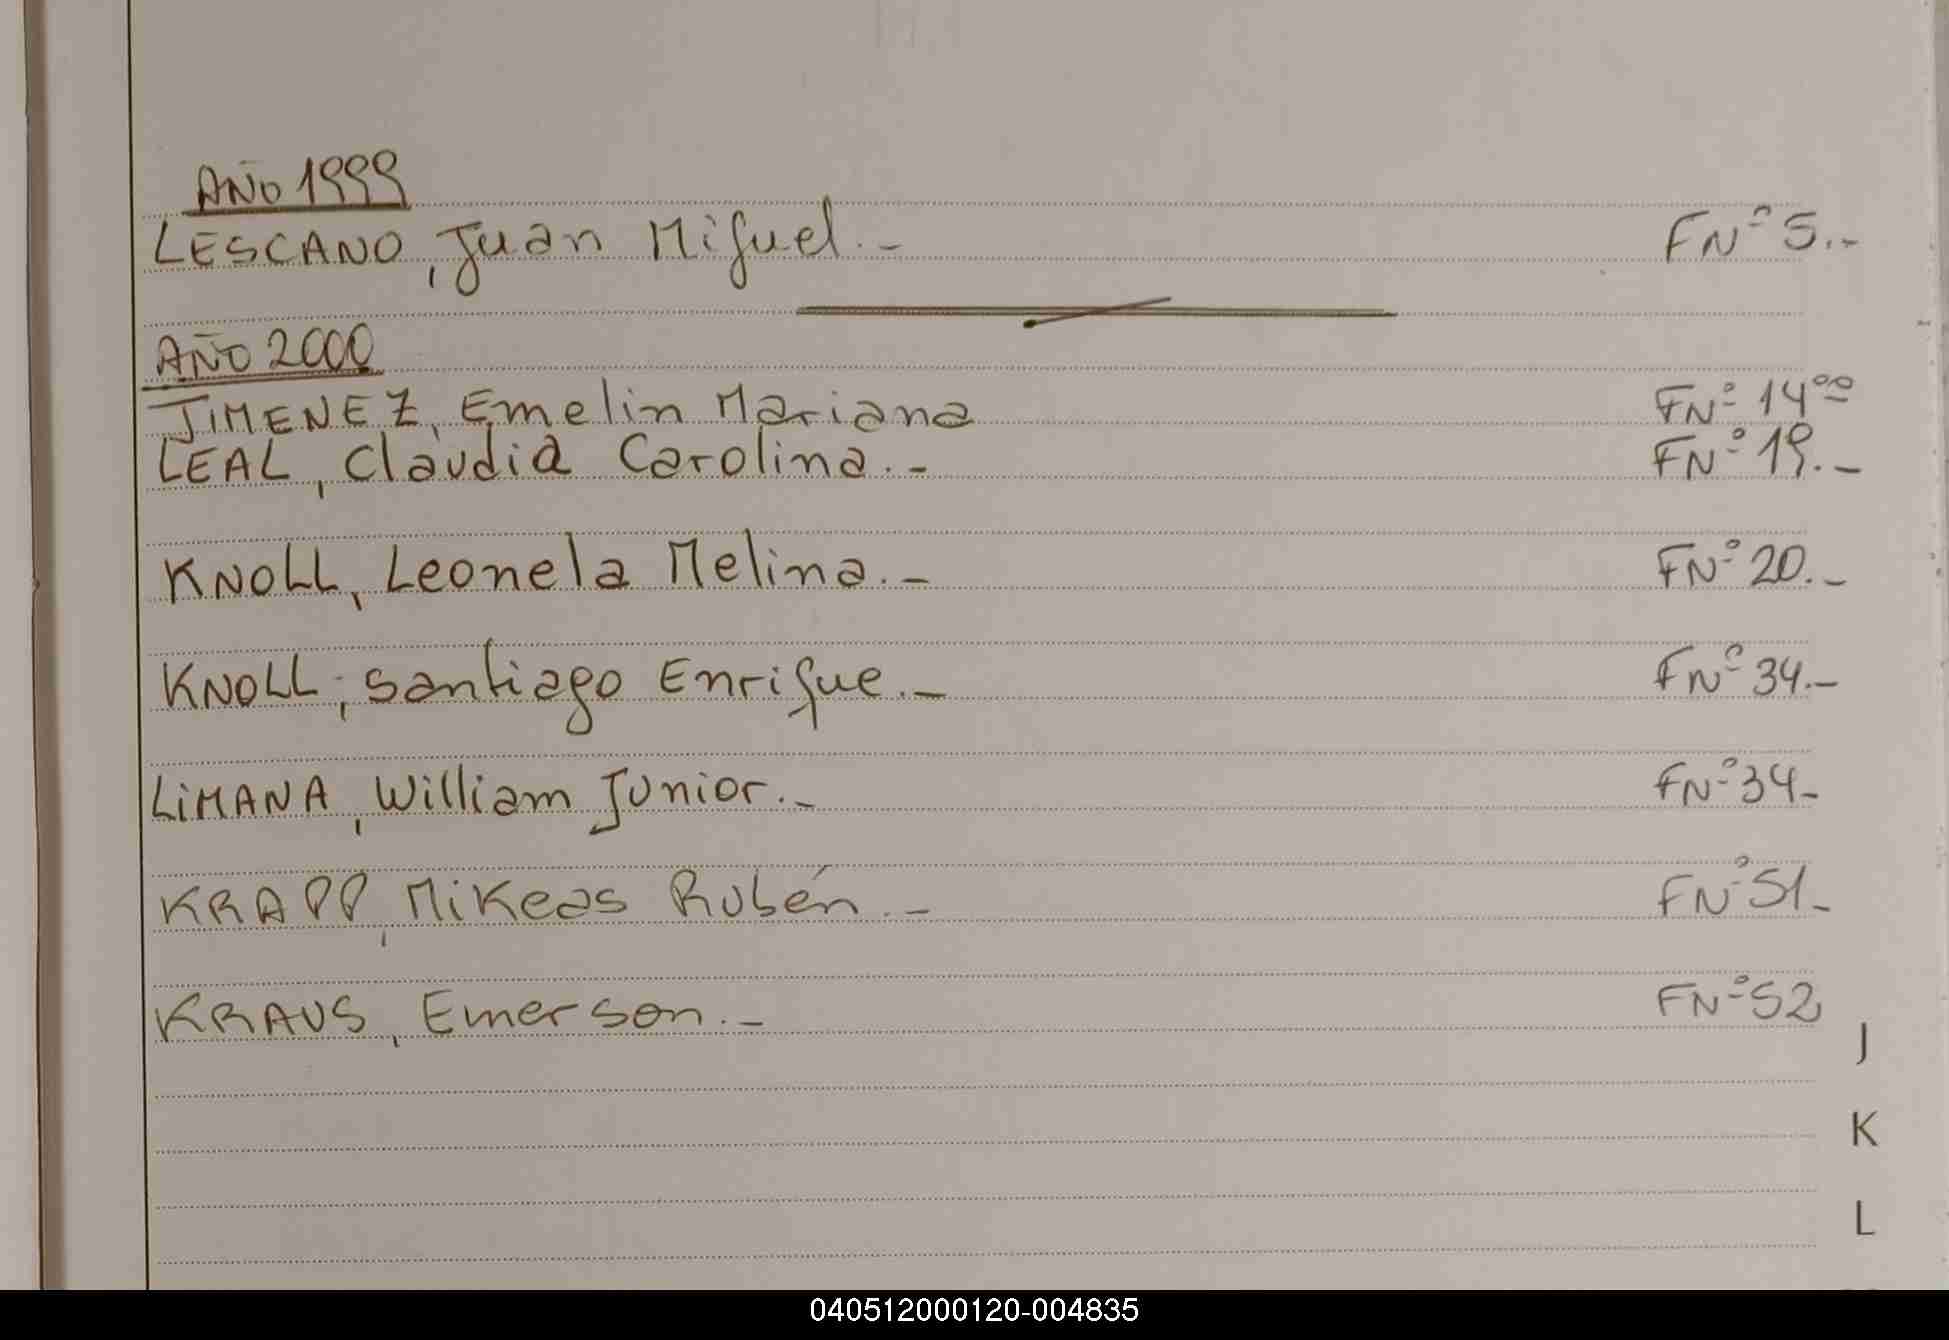 AÑO 1999
LESCANO, Juan Miguel.- FNº 5.-
AÑO 2000
JIMENEZ, Emelin Mariana FNº 14
LEAL, Claudia Carolina.- FNº 19.-
KNOLL, Leonela Melina.- FNº 20.-
KNOLL, Santiago Enrique.- FNº 34.-
LiMANA, William Junior.- FNº 34-
KRAPP, Mikeas Rubén.- FNº 51-
KRAUS, Emerson.- FNº 52
J
K
L
040512000120-004835